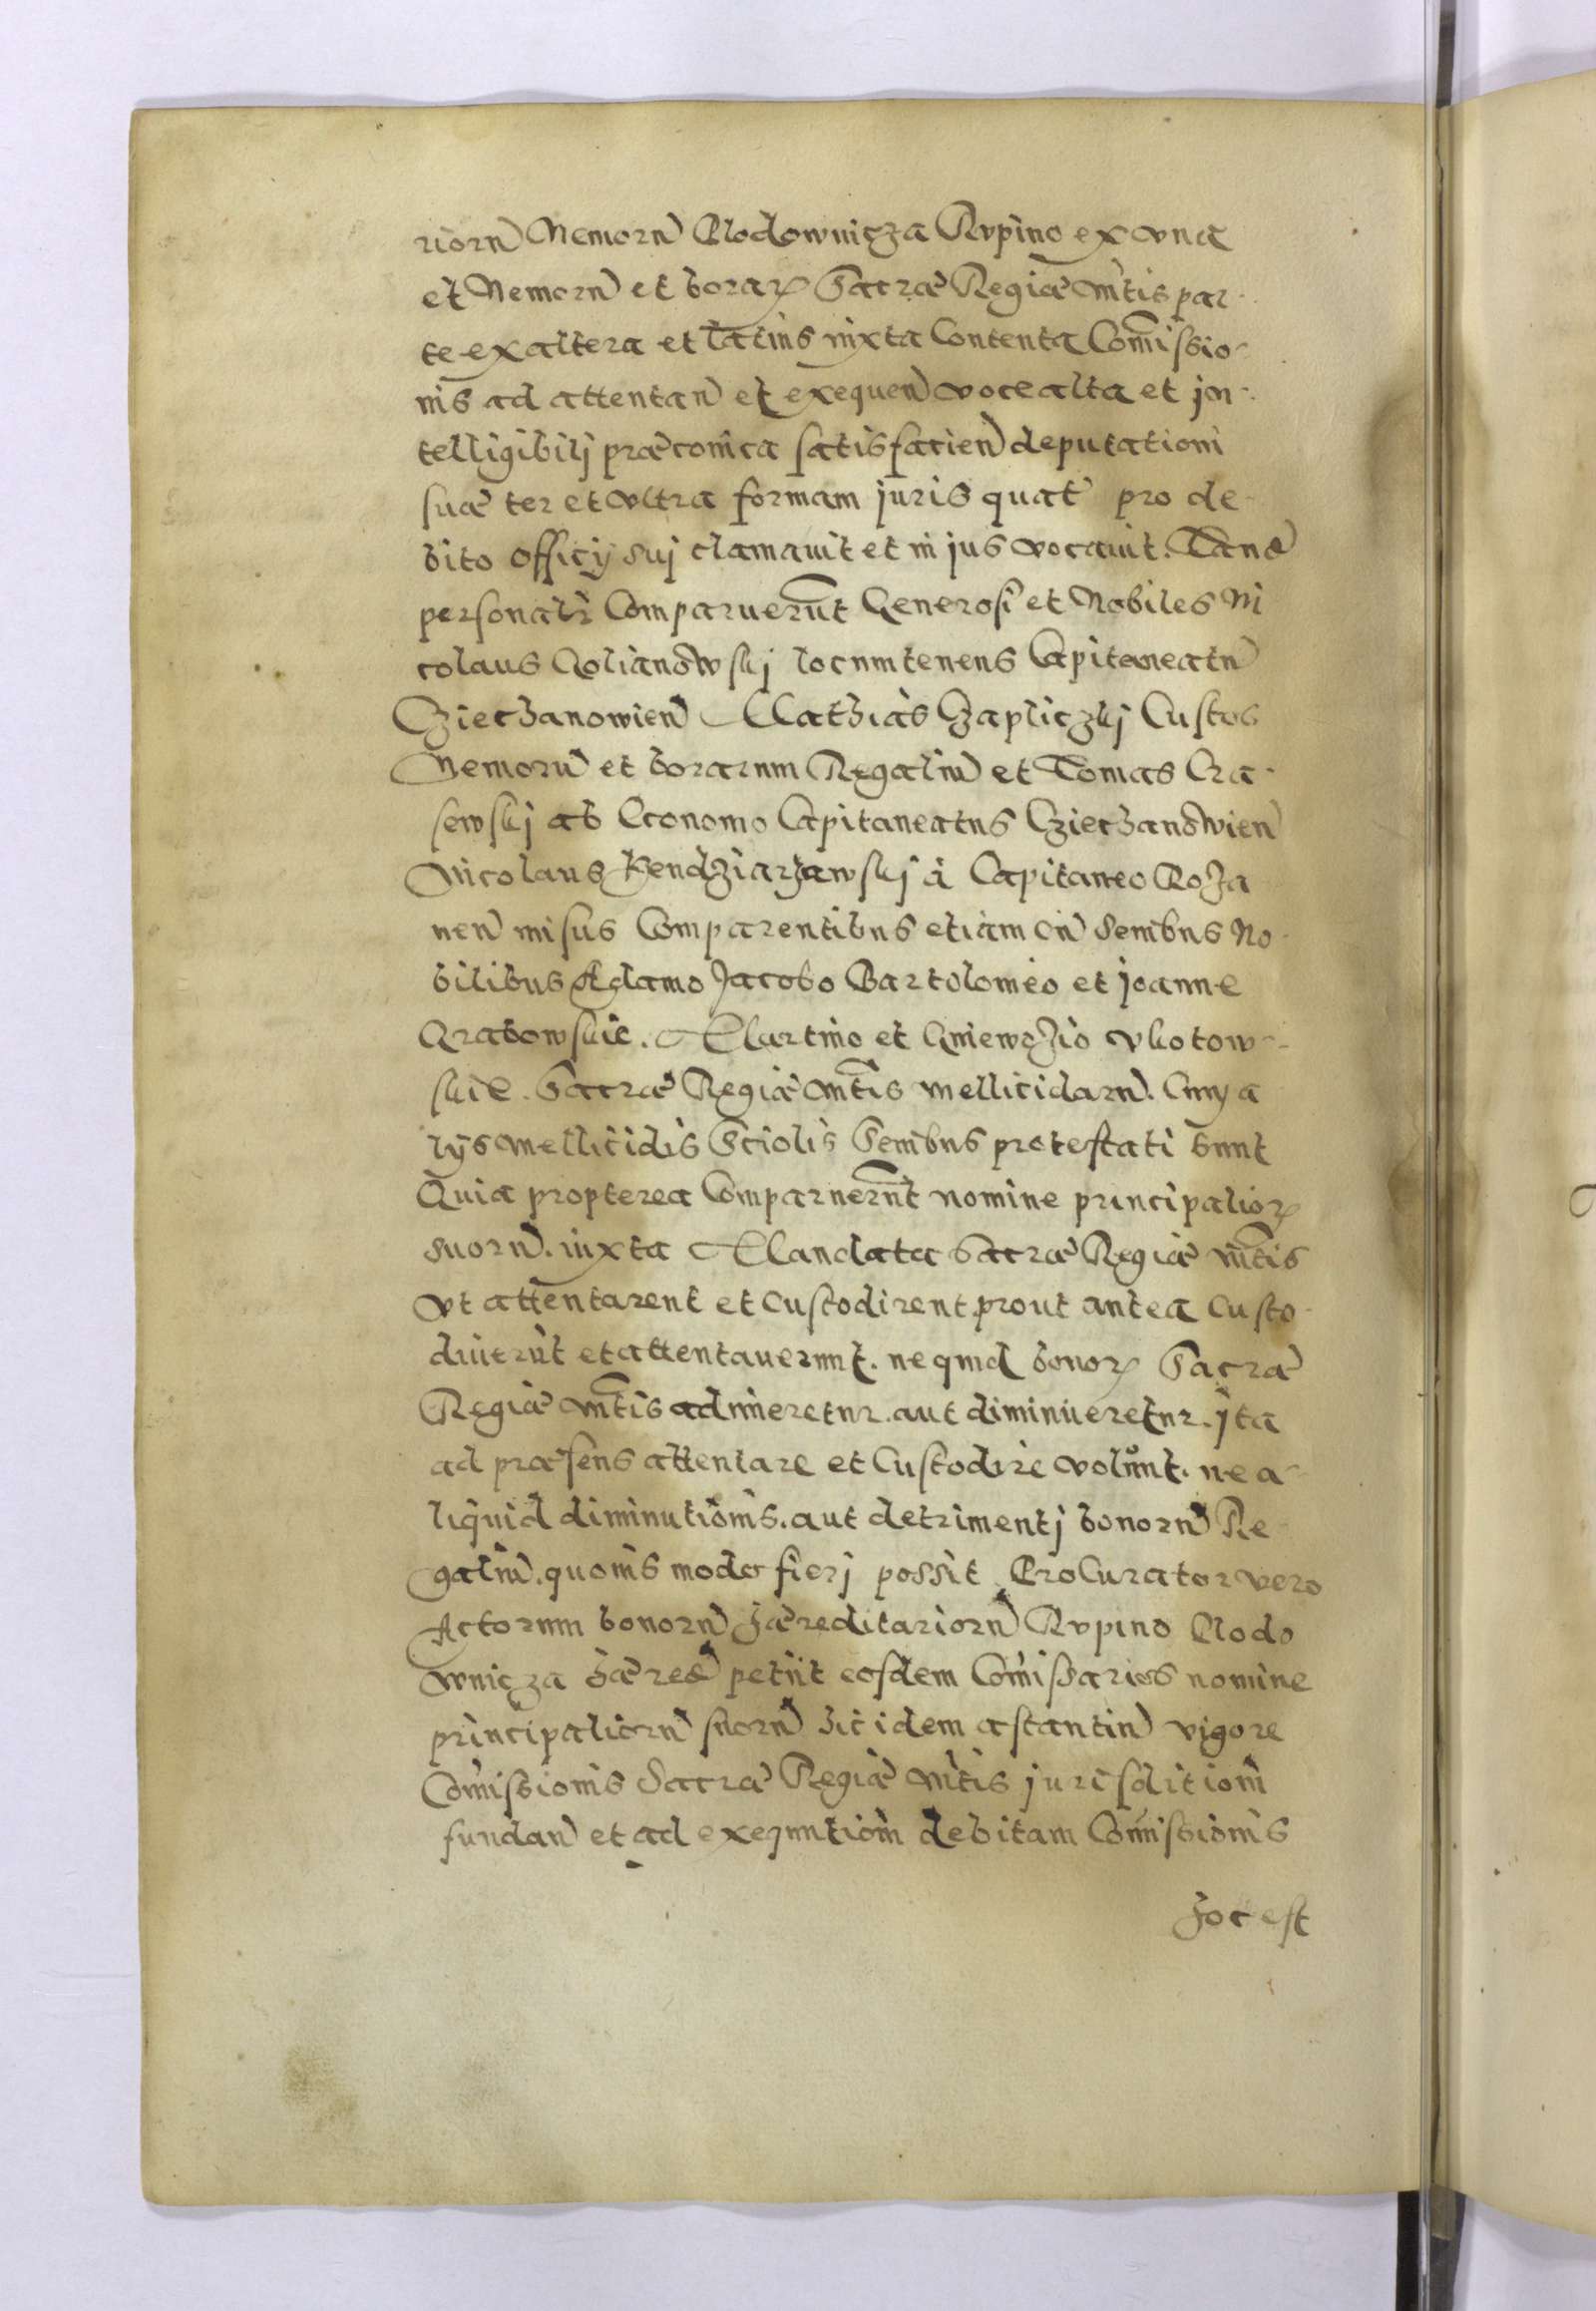 riorũ Nemorũ Plodownicza Rvpino ex vna
et Nemorũ et boraꝝ Sacræ Regiæ Mtis par-
te ex altera et latius iuxta Contenta Comissio-
nis ad attentan̄ et exequen̄ voce alta et jn-
telligibilj præconica satisfacien̄ deputationi
suæ ter et vltra formam juris quat pro de-
bito officij suj clamauit et in jus vocauit. Tand
personalr Comparuerunt Generosi et Nobiles Ni
colaus Golianowskj locumtenens Capitaneatu
Cziechanowien̄ Mathias Czapliczkj Custos
Nemorũ et borarum Regaliũ et Tomas Cra-
sewskj ab Economo Capitaneatus Cziechanowien̄
Nicolaus Kendziarzawskj à Capitaneo Roza
nen̄ misus Comparentibus etiam cũ Senibus No-
bilibus Adamo Jacobo Bartolomeo et joanne
Grabowskie. Martino et Gniewozio vkotow-
skie. Sacræ Regiæ Mtis mellicidarũ. Cum a
lijs mellicidis Sciolis Senibus protestati sunt
Quia propterea Comparuerunt nomine principalioꝝ
suorũ. iuxta Mandata Sacræ Regiæ Mtis
vt attentarent et custodirent prout antea custo-
diuerũt et attentauerunt. ne quid bonoꝝ Sacræ
Regiæ Mtis adimeretur. aut diminueretur. jta
ad præsens attentare et Custodire volunt. ne a-
liquid diminutionis. aut detrimentj bonorũ Re-
galiũ. quouis modo fierj possit. Procurator vero
Actorum bonorũ hæreditariorũ Rvpino Plodo
wnicza hæred petiit eosdem Comissarios nomine
principaliorũ suorũ hic idem astantiũ vigore
Comissionis Sacræ Regiæ Mtis jurisditiom
fundan̄ et ad exequutiom debitam Comissionis
hoc est